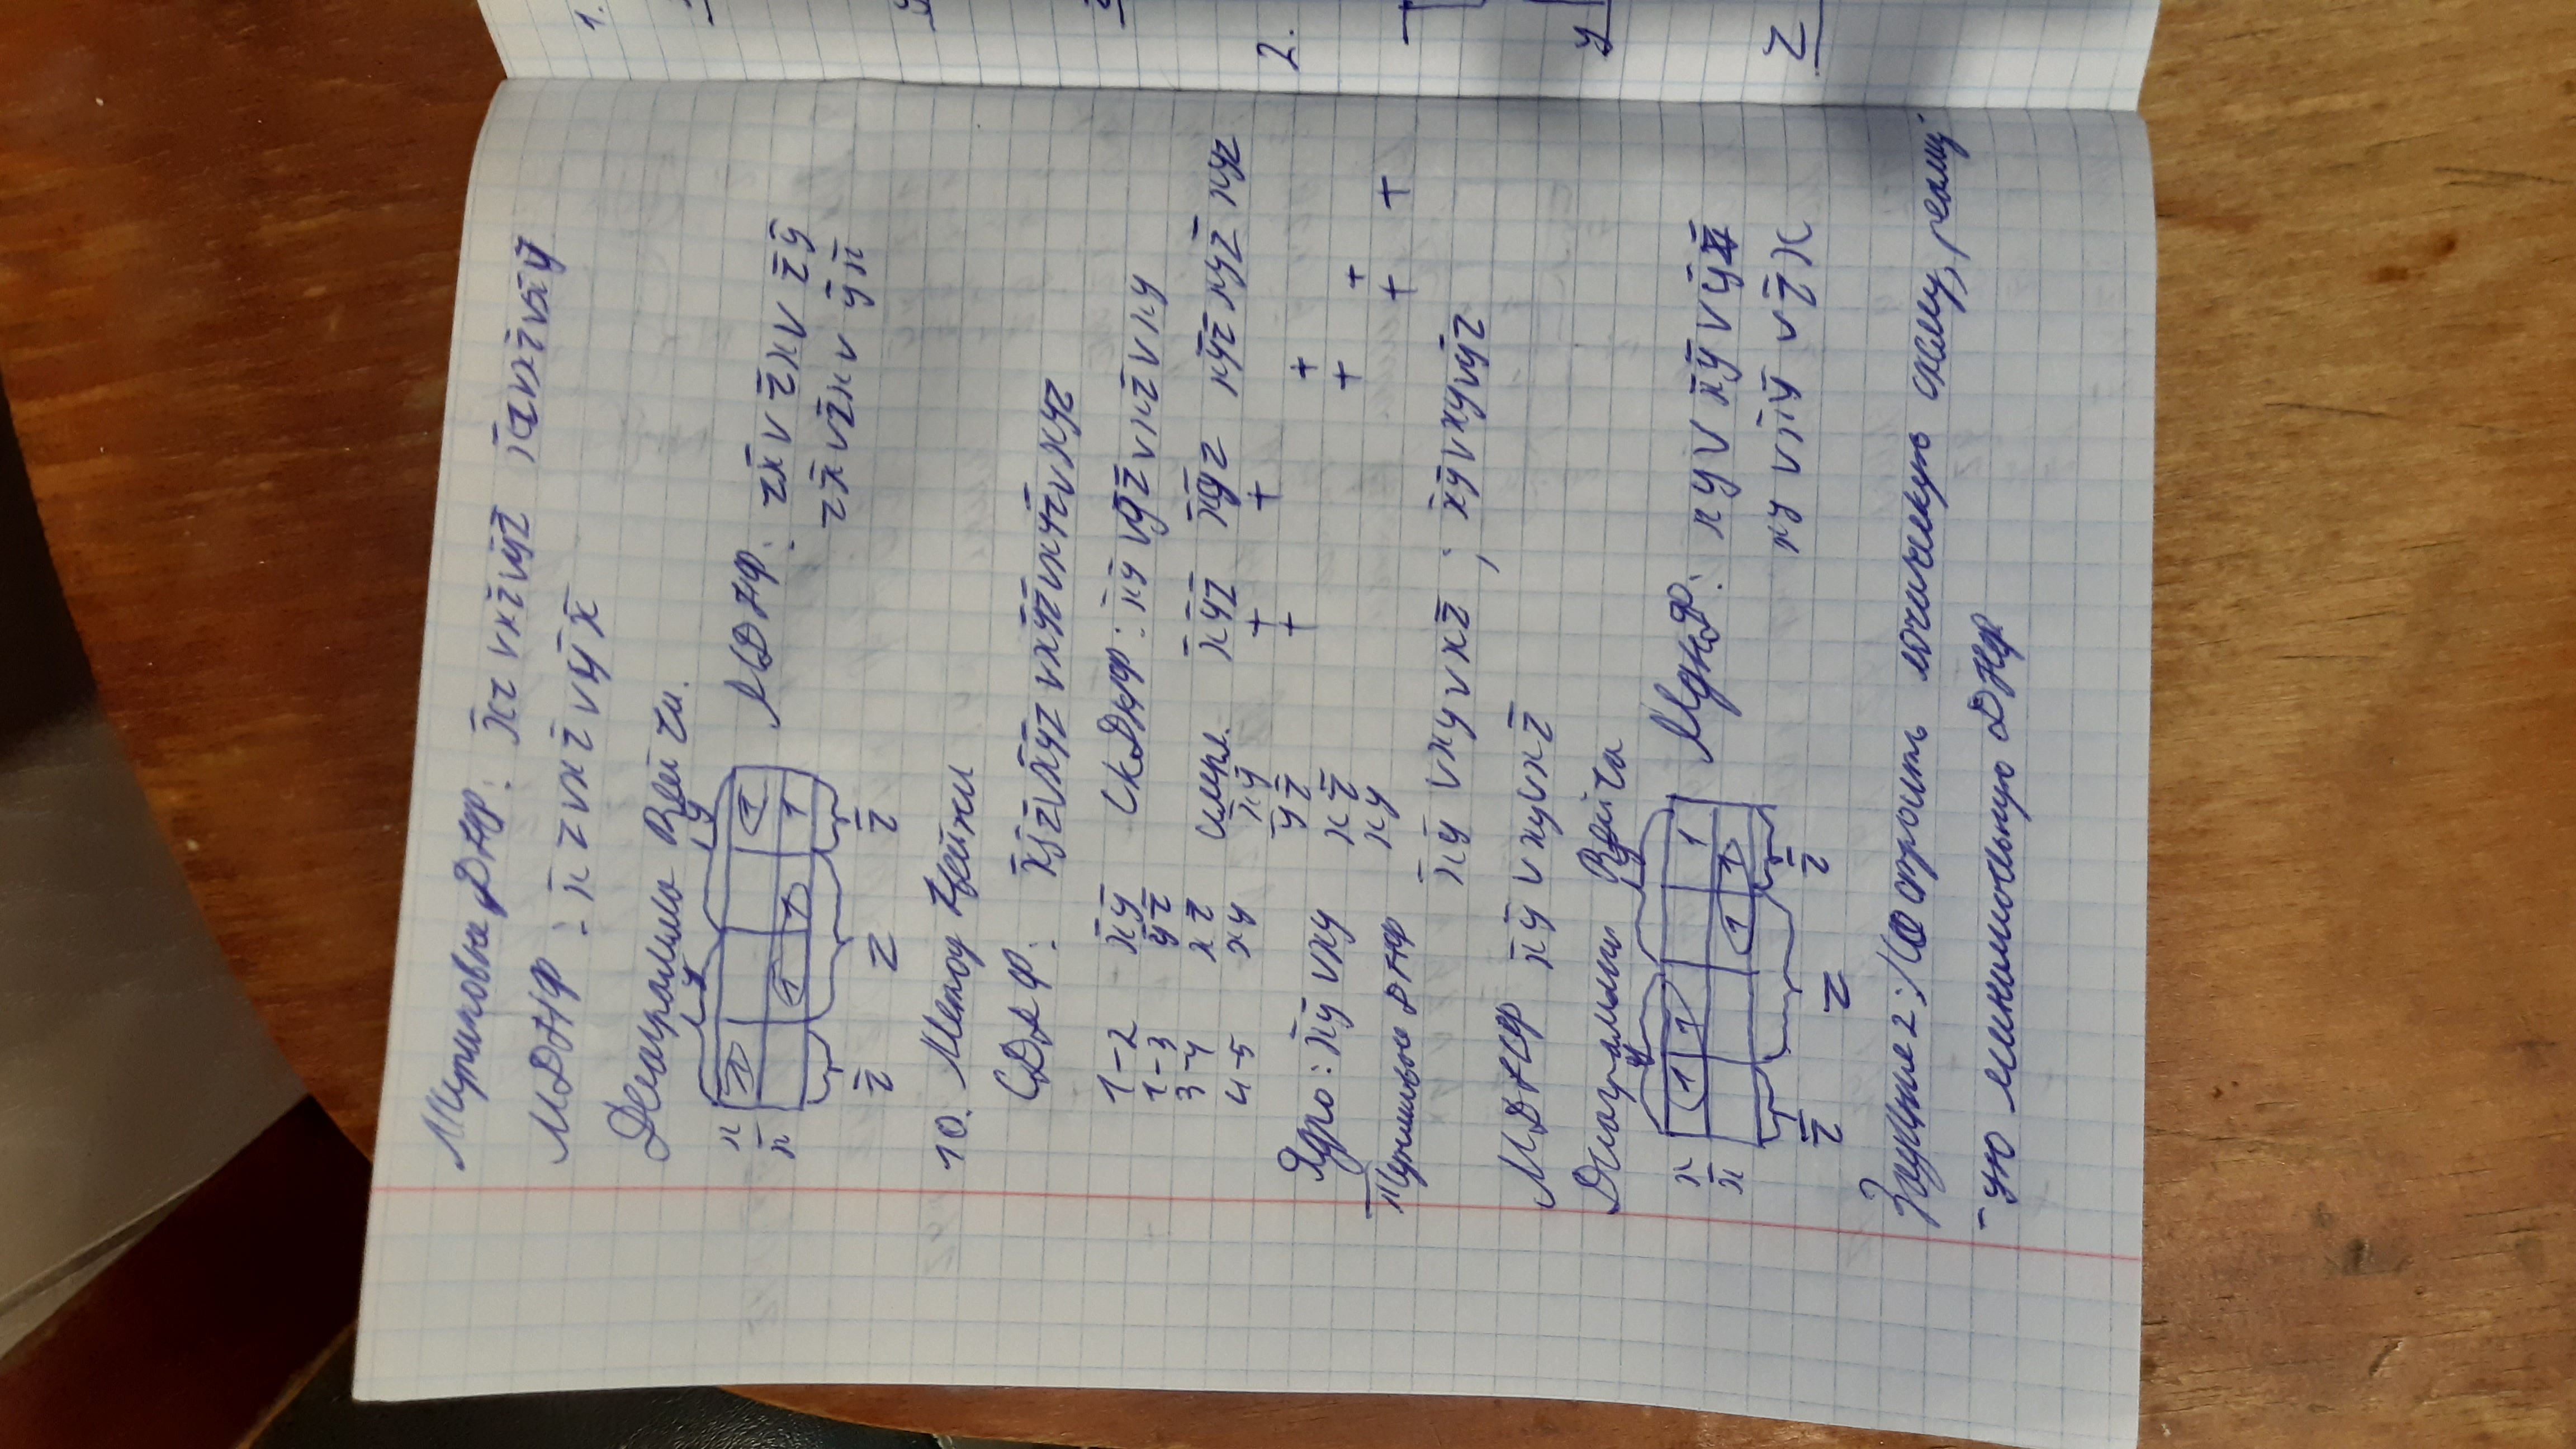 Тупиковые ДНФ: x̄z ∨ xz̄ ∨ ȳz̄ x̄z ∨ xz̄ ∨ x̄ȳ
МДНФ: x̄z ∨ xz̄ ∨ ȳx̄
Диаграмма Вейча.
y ȳ
x 1 1
x̄ 1 1 1
z̄ z z̄
МДНФ: zx̄ ∨ z̄x ∨ z̄ȳ
zx̄ ∨ z̄x ∨ ȳx̄
10. Метод Квайна
СДНФ: x̄ȳz̄ ∨ x̄ȳz ∨ xȳz̄ ∨ xyz̄ ∨ xyz
1-2 x̄ȳ СкДНФ: x̄ȳ ∨ ȳz̄ ∨ xz̄ ∨ xy
1-3 ȳz̄
3-4 xz̄
4-5 xy
импл. x̄ȳz̄ x̄ȳz xȳz̄ xyz̄ xyz
x̄ȳ + +
ȳz̄ + +
xz̄ + +
xy + +
Ядро: x̄ȳ ∨ xy
Тупиковые ДНФ
x̄ȳ ∨ xy ∨ xz̄ ; x̄ȳ ∨ xy ∨ ȳz̄
МДНФ x̄ȳ ∨ xy ∨ xz̄
Диаграмма Вейча
y ȳ
x 1 1 1
x̄ 1 1
z̄ z z̄
Мднф: xy ∨ x̄ȳ ∨ ȳz̄
xy ∨ x̄ȳ ∨ z̄x
Задание 2: Построить логическую схему, реализ
-ую минимальную ДНФ
1.
2.
y
z